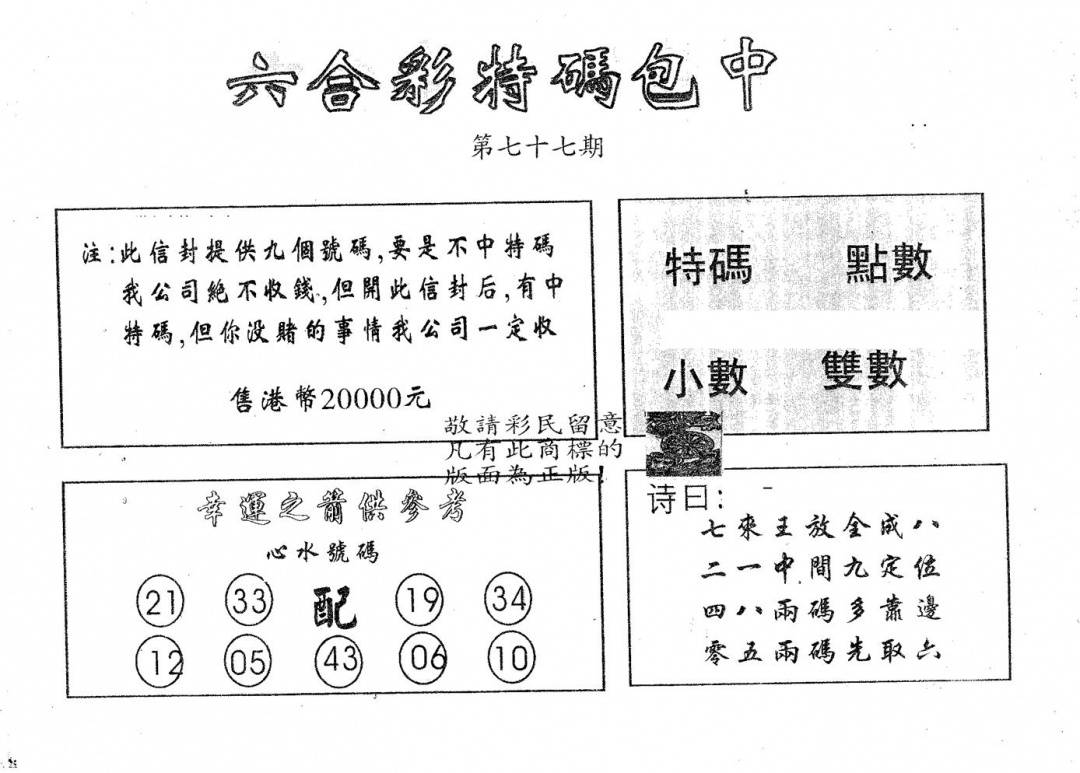 六合彩特碼包中
第七十七期
注:此信封提供九個號碼,要是不中特碼
我公司絶不收錢,但開此信封后,有中
特碼,但你没賭的事情我公司一定收
售港幣20000元
特碼 點數
小數 雙數
敬請彩民留意
凡有此商標的
版面為正版!
幸運之箭供參考
心水號碼
21 33 配 19 34
12 05 43 06 10
诗曰:
七來王放全成八
二一中間九定位
四八兩碼多靠邊
零五兩碼先取六